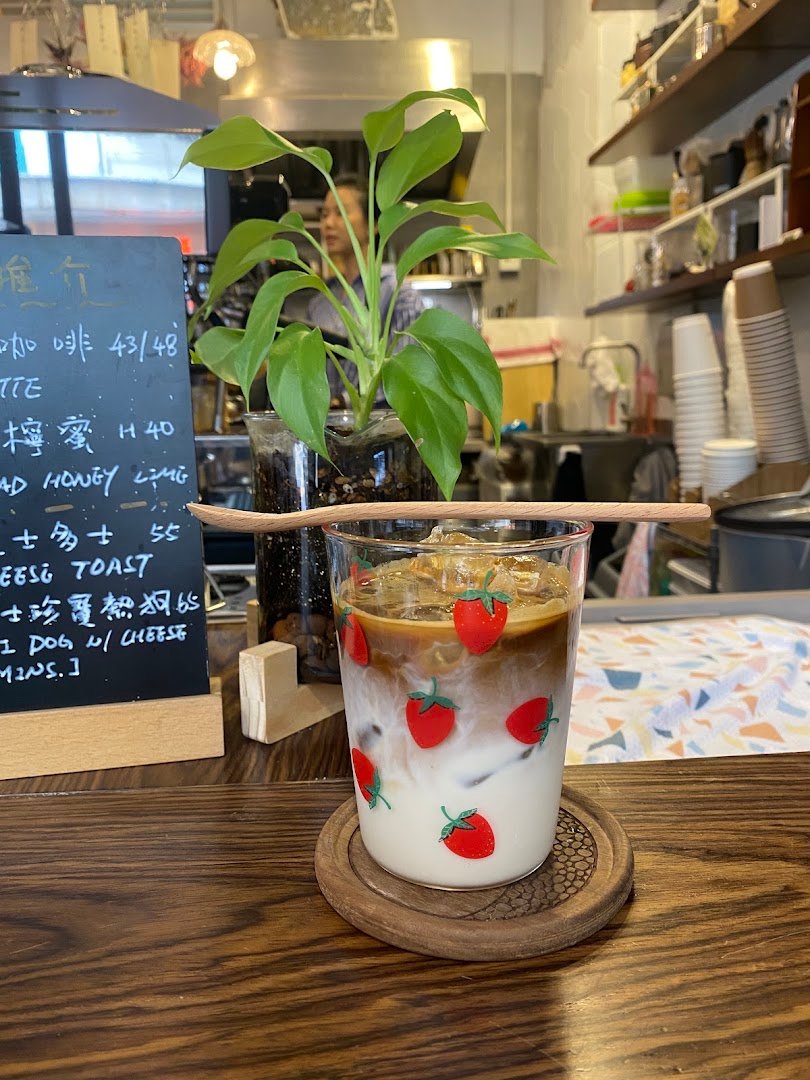 推介
咖啡 43/48
TTE
檸蜜 H 40
AD HONEY LIME
士多士 55
EESE TOAST
士珍寶熱狗 65
I DOG W/ CHEESE
MINS.]